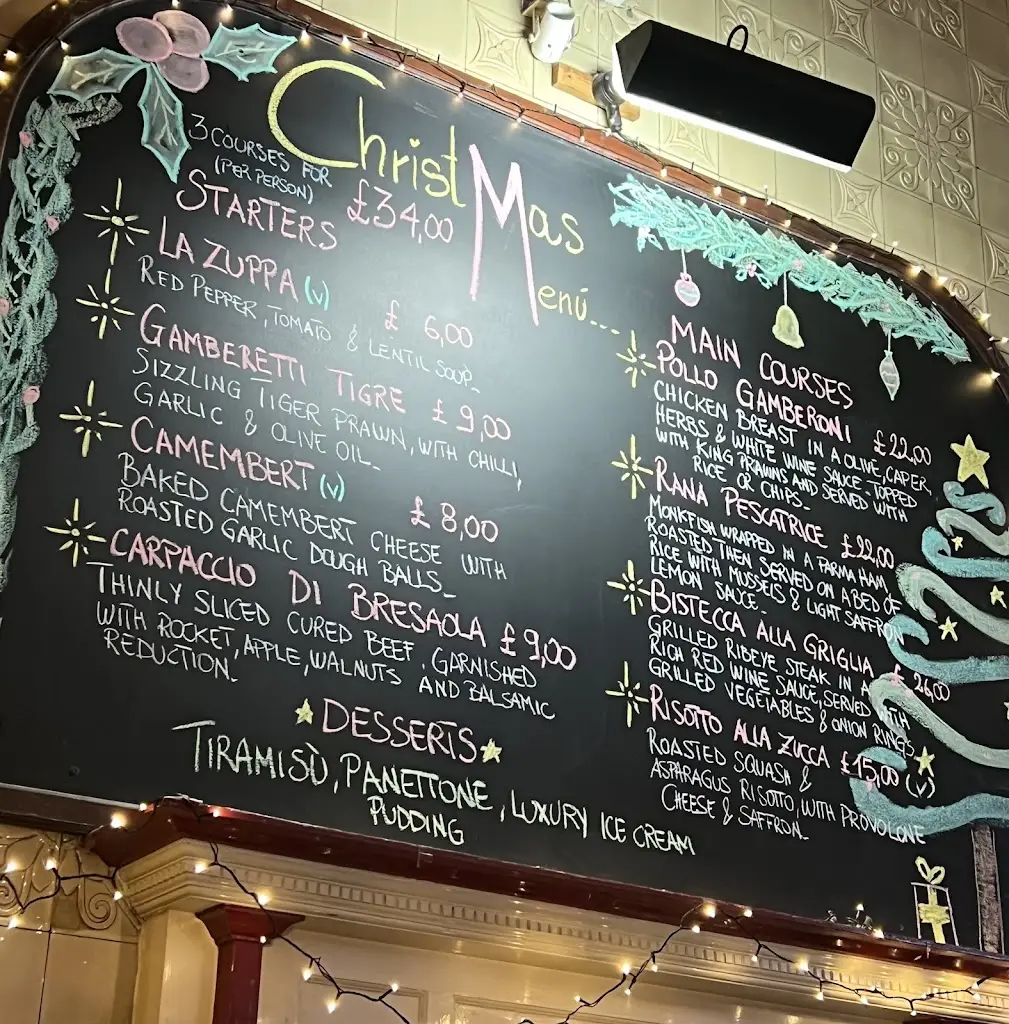 Christmas Menú...
3 COURSES FOR
(PER PERSON)
£34,00
STARTERS
LA ZUPPA (V) £ 6,00
RED PEPPER, TOMATO & LENTIL SOUP_
GAMBERETTI TIGRE £ 9,00
SIZZLING TIGER PRAWN, WITH CHILLI,
GARLIC & OLIVE OIL_
CAMEMBERT (V) £ 8,00
BAKED CAMEMBERT CHEESE WITH
ROASTED GARLIC DOUGH BALLS_
CARPACCIO DI BRESAOLA £9,00
THINLY SLICED CURED BEEF, GARNISHED
WITH ROCKET, APPLE, WALNUTS AND BALSAMIC
REDUCTION_
DESSERTS
TIRAMISÙ, PANETTONE, LUXURY ICE CREAM
PUDDING
MAIN COURSES
POLLO GAMBERONI £22,00
CHICKEN BREAST IN A OLIVE, CAPER,
HERBS & WHITE WINE SAUCE - TOPPED
WITH KING PRAWNS AND SERVED WITH
RICE OR CHIPS_
RANA PESCATRICE £22,00
MONKFISH WRAPPED IN A PARMA HAM
ROASTED THEN SERVED ON A BED OF
RICE WITH MUSSELS & LIGHT SAFFRON
LEMON SAUCE_
BISTECCA ALLA GRIGLIA £ 26,00
GRILLED RIBEYE STEAK IN A
RICH RED WINE SAUCE, SERVED WITH
GRILLED VEGETABLES & ONION RINGS_
RISOTTO ALLA ZUCCA £15,00 (V)
ROASTED SQUASH &
ASPARAGUS RISOTTO, WITH PROVOLONE
CHEESE & SAFFRON_